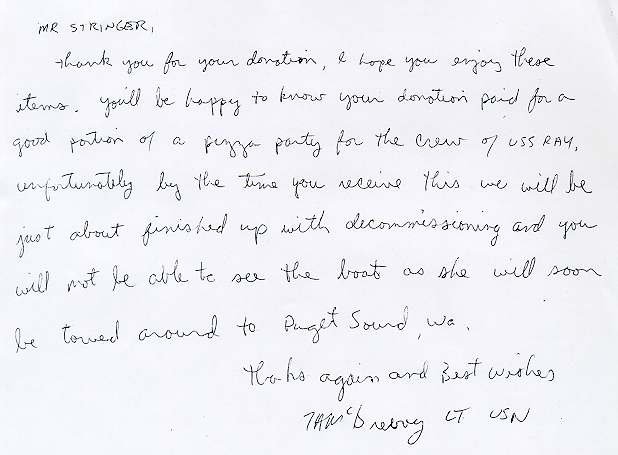 MR STRINGER,
Thank you for your donation, I hope you enjoy these
items. You'll be happy to know your donation paid for a
good portion of a pizza party for the crew of USS RAY,
unfortunately by the time you receive this we will be
just about finished up with decommissioning and you
will not be able to see the boat as she will soon
be towed around to Puget Sound, Wa.
Thanks again and Best wishes
LT USN